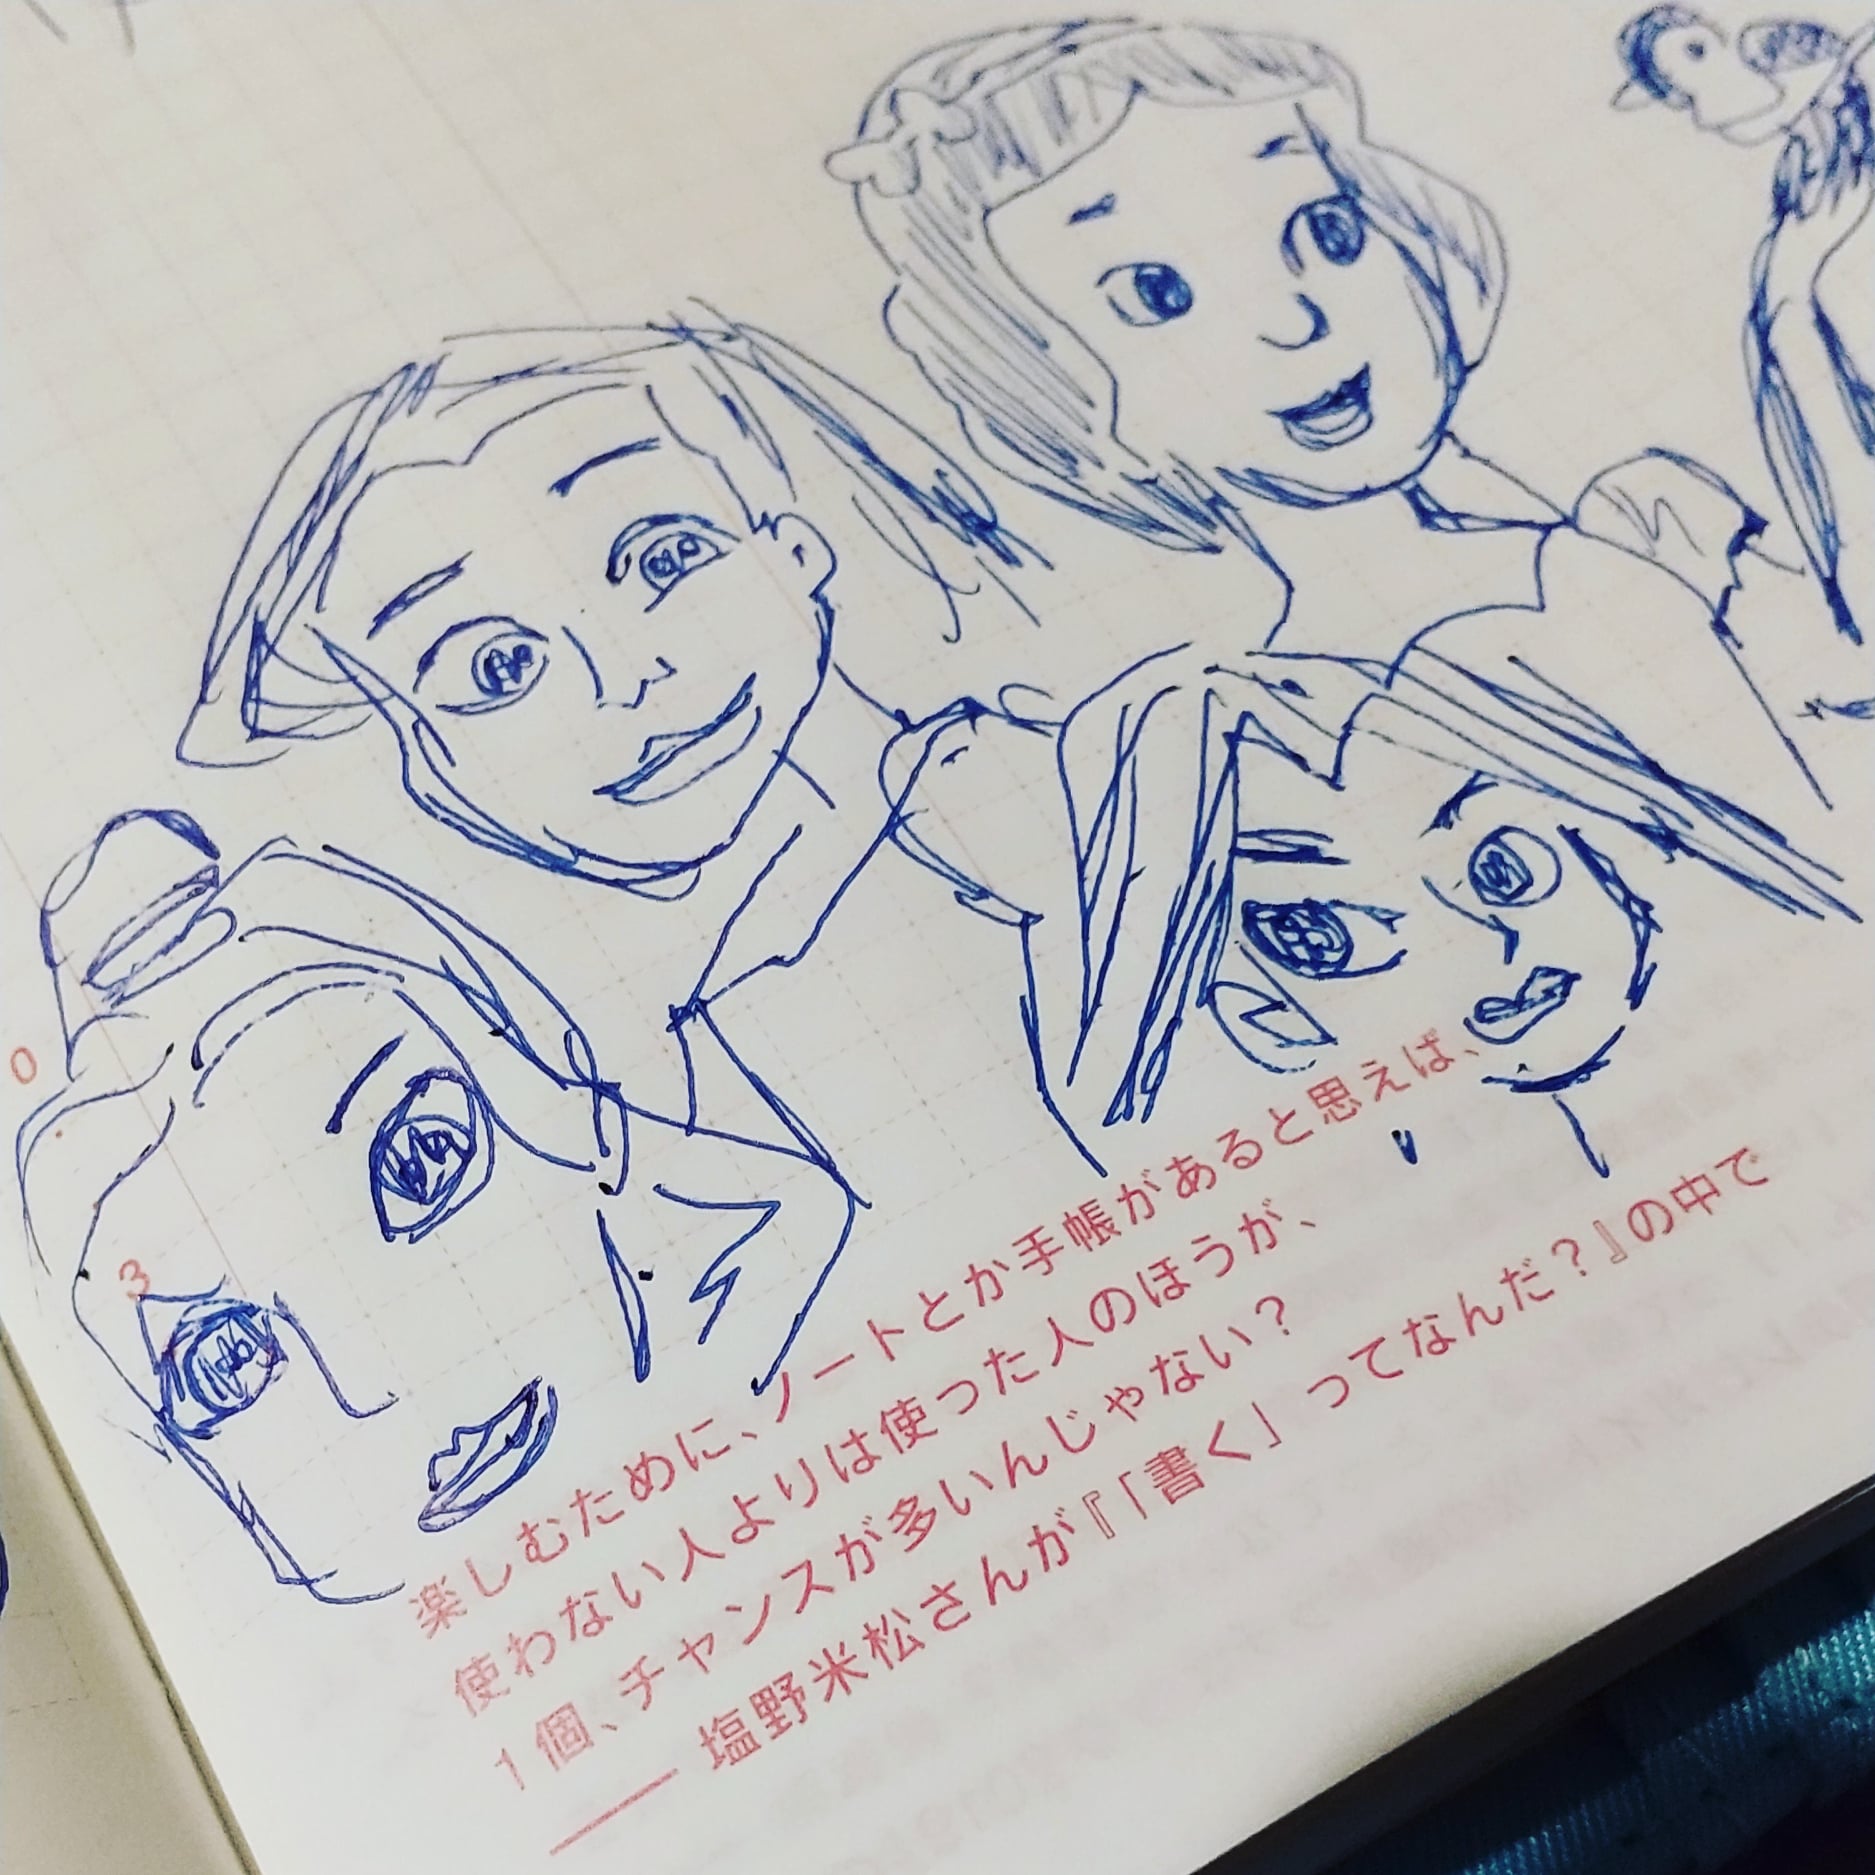 0
3
楽しむために、ノートとか手帳があると思えば、
使わない人よりは使った人のほうが、
1個、チャンスが多いんじゃない？
――塩野米松さんが『「書く」ってなんだ？』の中で